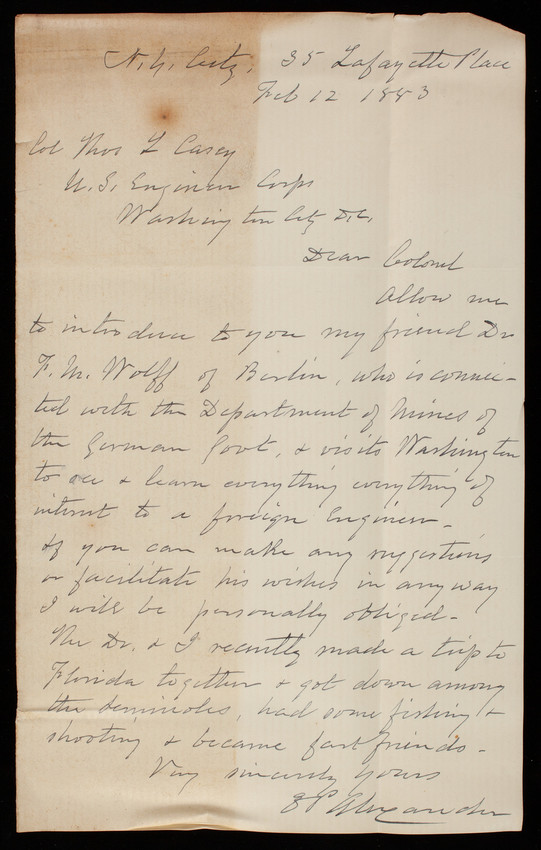 N. Y. City, 35 Lafayette Place
Feb 12 1883
Col Thos L Casey
U.S. Engineer Corps
Washington City D.C.
Dear Colonel
Allow me
to introduce to you my friend Dr
F. M. Wolff of Berlin, who is connec-
ted with the Department of Mines of
the German Govt, & visits Washington
to see & learn everything everything of
interest to a foreign Engineer -
If you can make any suggestions
or facilitate his wishes in any way
I will be personally obliged -
The Dr. & I recently made a trip to
Florida together & got down among
the Seminoles, had some fishing &
shooting & became fast friends -
Very sincerely yours
E P Alexander